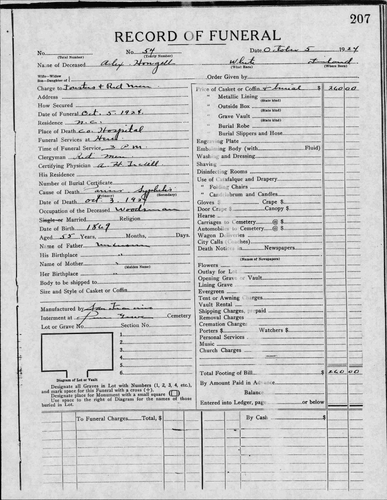 207
RECORD OF FUNERAL
No. No. 54 Date October 5 1924
(Total Number) (Yearly Number)
Name of Deceased Alex White
(What Race) (Where Born)
Wife—Widow
Son—Daughter of Order Given by
Charge to Trustees & Red Men
Address
How Secured
Date of Funeral Oct. 5 1924
Residence N.C.
Place of Death Co. Hospital
Funeral Services at Here
Time of Funeral Service, 3 P.M.
Clergyman Red Men
Certifying Physician
His Residence
Number of Burial Certificate
Cause of Death
(Secondary)
Date of Death Oct 3 1924
Occupation of the Deceased Woodsman
Single or Married. Religion
Date of Birth 1869
Aged 55 Years, Months, Days.
Name of Father
His Birthplace
Name of Mother
(Maiden Name)
Her Birthplace
Body to be shipped to
Size and Style of Casket or Coffin
Manufactured by San Francisco
Interment at Cemetery
Lot or Grave No. Section No.
1.
2.
3.
4.
5.
6.
Diagram of Lot or Vault
Designate all Graves in Lot with Numbers (1, 2, 3, 4, etc.), and mark space for this Funeral with a cross (+).
Designate place for Monument with a small square
Use space to the right of Diagram for the names of those buried in Lot.
To Funeral Charges Total, $
Price of Casket or Coffin & burial $ 260 00
" Metallic Lining
(State kind)
" Outside Box
(State kind)
" Grave Vault
(State kind)
" Burial Robe
" Burial Slippers and Hose
Engraving Plate
Embalming Body (with Fluid)
Washing and Dressing
Shaving
Disinfecting Rooms
Use of Catafalque and Drapery
" Folding Chairs
" Candelabrum and Candles
Gloves $ Crape $
Door Crape $ Canopy $
Hearse
Carriages to Cemetery @ $
Automobiles to Cemetery @ $
Wagon Deliveries
City Calls (Coaches)
Death Notices in Newspapers
(Names of Newspapers)
Flowers
Outlay for Lot
Opening Grave or Vault
Lining Grave
Evergreen
Tent or Awning Charges
Vault Rental
Shipping Charges, prepaid
Removal Charges
Cremation Charge
Porters $ Watchers $
Personal Services
Music
Church Charges
Total Footing of Bill $ 260 00
By Amount Paid in Advance
Balance
Entered into Ledger, page or below
By Cash $